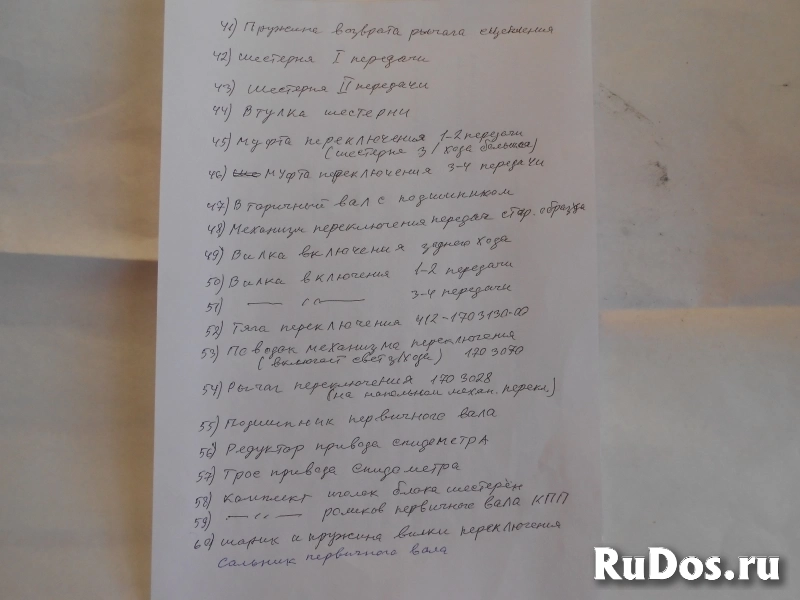 41) Пружина возврата рычага сцепления
42) шестерня I передачи
43) шестерня II передачи
44) Втулка шестерни
45) Муфта переключения 1-2 передачи
(шестерня з/хода большая)
46) Муфта переключения 3-4 передачи
47) Вторичный вал с подшипником
48) Механизм переключения передач стар. образца
49) Вилка включения заднего хода
50) Вилка включения 1-2 передачи
51) — " — 3-4 передачи
52) Тяга переключения 412-1703130-00
53) Поводок механизма переключения
(включает свет з/хода) 1703070
54) Рычаг переключения 1703028
(на напольном механ. перекл)
55) Подшипник первичного вала
56) Редуктор привода спидометра
57) Трос привода спидометра
58) Комплект иголок блока шестерён
59) — " — роликов первичного вала КПП
60) шарик и пружина вилки переключения
Сальник первичного вала
RuDos.ru